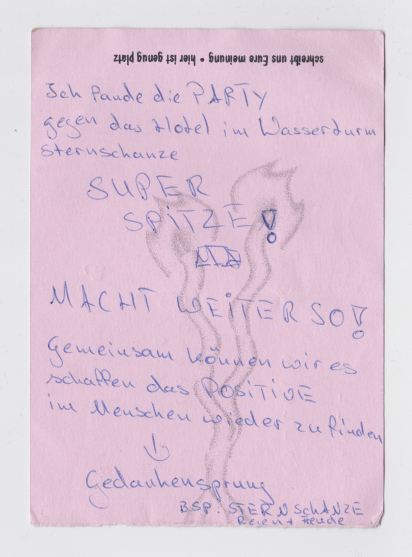 schreibt uns Eure meinung • hier ist genug platz
Ich fande die PARTY
gegen das Hotel im Wasserturm
Sternschanze
SUPER
SPITZE!
MACHT WEITER SO!
Gemeinsam können wir es
schaffen das POSITIVE
im Menschen wieder zu finden
↓
Gedankensprung
BSP: STERNSCHANZE